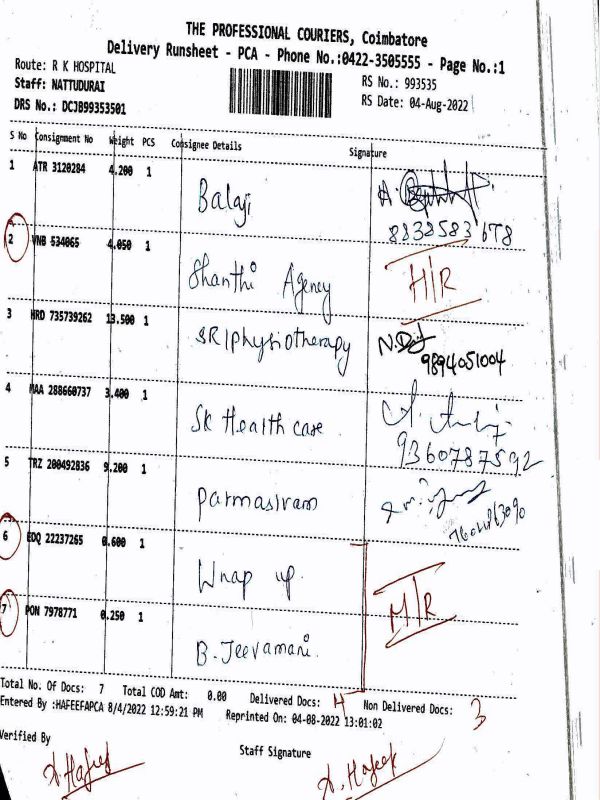 THE PROFESSIONAL COURIERS, Coimbatore
Delivery Runsheet - PCA - Phone No.:0422-3505555 - Page No.:1
Route: R K HOSPITAL
RS No.: 993535
Staff: NATTUDURAI
RS Date: 04-Aug-2022
DRS No.: DCJB99353501
S No Consignment No Weight PCS Consignee Details Signature
1 ATR 3120284 4.200 1
Balaji
8838583678
2 VNB 534065 4.050 1
Shanthi Agency H/R
3 HRD 735739262 13.500 1
SRI physiotherapy
9894051004
4 MAA 288660737 3.400 1
SK Health case
9360787592
5 TRZ 200492836 9.200 1
Parmasivam
6 EDQ 22237265 0.600 1
Wrap up M/R
7 PON 7978771 0.250 1
B. Jeevamani.
Total No. Of Docs: 7 Total COD Amt: 0.00 Delivered Docs: 4 Non Delivered Docs: 3
Entered By :HAFEEFAPCA 8/4/2022 12:59:21 PM Reprinted On: 04-08-2022 13:01:02
Verified By Staff Signature